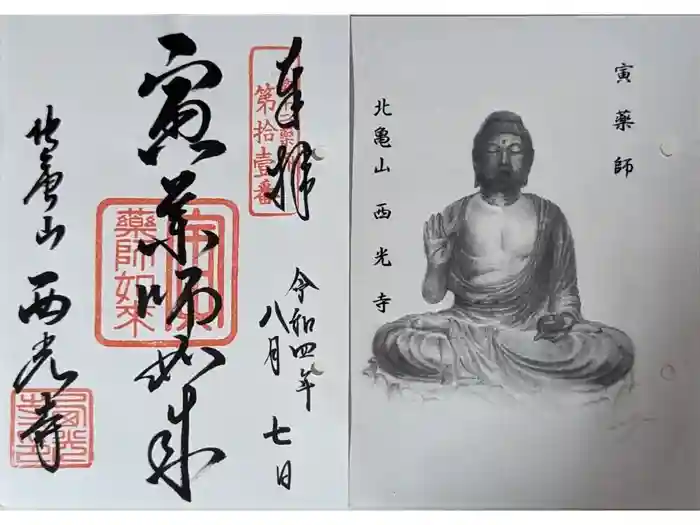 奉拝
第拾壹番
令和四年
八月 七日
寅薬師如来
薬師如来
北亀山 西光寺
寅薬師
北亀山 西光寺